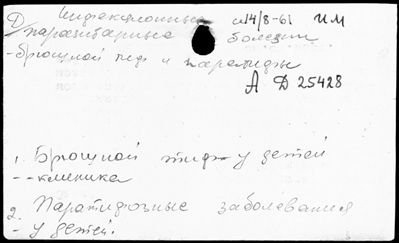 Д Инфекционные и 14/8-61 ИМ
паразитарные болезни
- Брюшной тиф и паратифы
А Д 25428
1. Брюшной тиф - у детей
- - клиника
2. Паратифозные заболевания
- у детей.